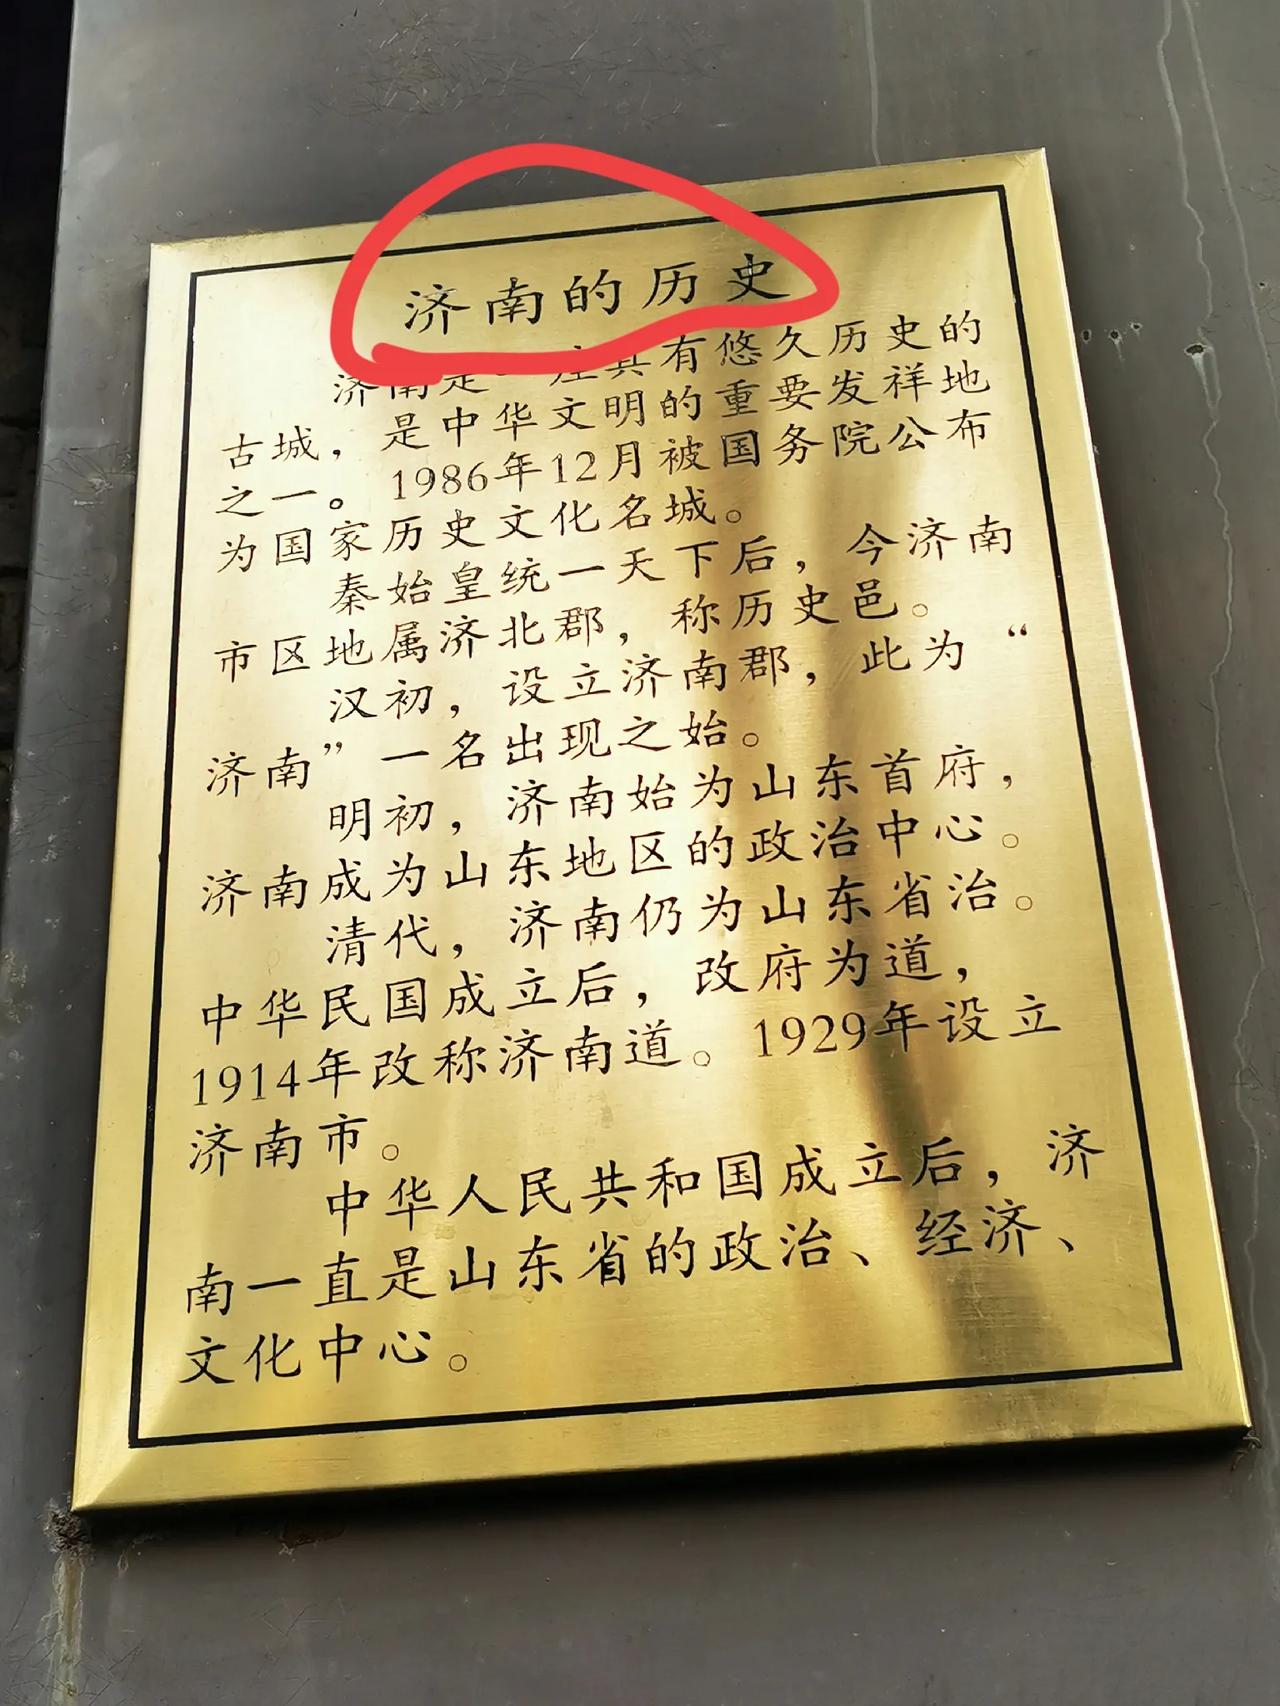 济南的历史
济南是一座具有悠久历史的
古城，是中华文明的重要发祥地
之一。1986年12月被国务院公布
为国家历史文化名城。
秦始皇统一天下后，今济南
市区地属济北郡，称历史邑。
汉初，设立济南郡，此为“
济南”一名出现之始。
明初，济南始为山东首府，
济南成为山东地区的政治中心。
清代，济南仍为山东省治。
中华民国成立后，改府为道，
1914年改称济南道。1929年设立
济南市。
中华人民共和国成立后，济
南一直是山东省的政治、经济、
文化中心。